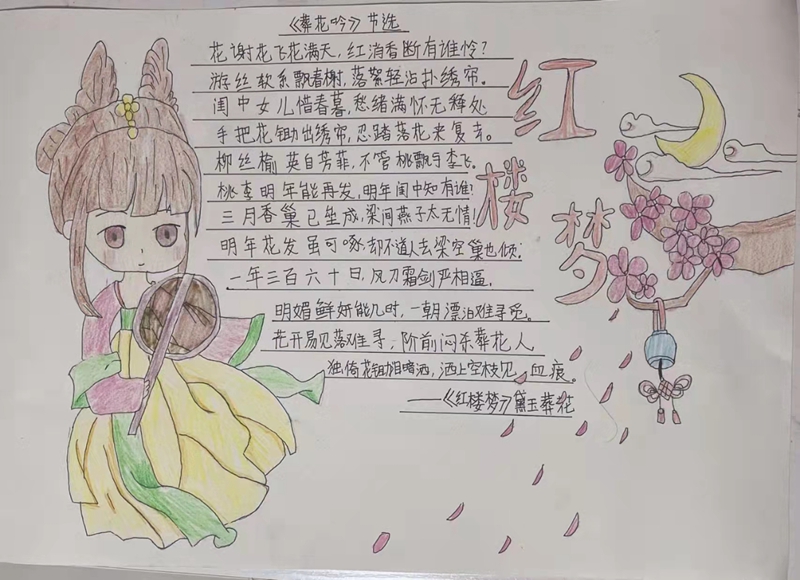 《葬花吟》节选
花谢花飞花满天，红消香断有谁怜？
游丝软系飘春榭，落絮轻沾扑绣帘。
闺中女儿惜春暮，愁绪满怀无释处
手把花锄出绣帘，忍踏落花来复去。
柳丝榆英自芳菲，不管桃飘与李飞。
桃李明年能再发，明年闺中知有谁！
三月香巢已垒成，梁间燕子太无情！
明年花发虽可啄，却不道人去梁空巢也倾。
一年三百六十日，风刀霜剑严相逼。
明媚鲜妍能几时，一朝漂泊难寻觅。
花开易见落难寻，阶前闷杀葬花人
独倚花锄泪暗洒，洒上空枝见血痕。
——《红楼梦》黛玉葬花
红楼梦